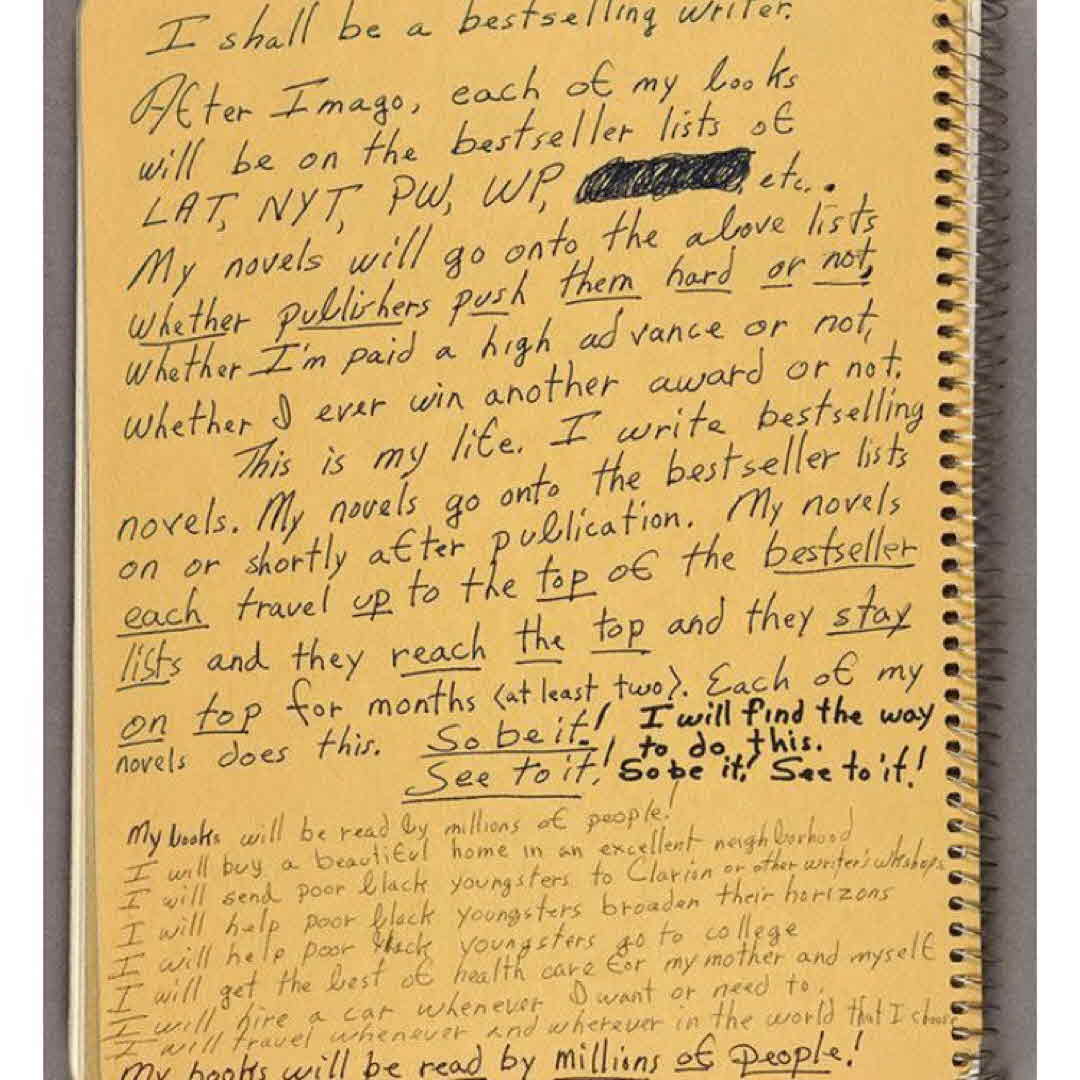 I shall be a bestselling writer.
After Imago, each of my books
will be on the bestseller lists of
LAT, NYT, PW, WP, etc..
My novels will go onto the above lists
whether publishers push them hard or not,
whether I'm paid a high advance or not,
whether I ever win another award or not.
This is my life. I write bestselling
novels. My novels go onto the bestseller lists
on or shortly after publication. My novels
each travel up to the top of the bestseller
lists and they reach the top and they stay
on top for months (at least two). Each of my
novels does this. So be it! I will find the way
to do this.
See to it! So be it! See to it!
My books will be read by millions of people!
I will buy a beautiful home in an excellent neighborhood
I will send poor black youngsters to Clarion or other writer's wkshops
I will help poor black youngsters broaden their horizons
I will help poor black youngsters go to college
I will get the best of health care for my mother and myself
I will hire a car whenever I want or need to.
I will travel whenever and wherever in the world that I choose
My books will be read by millions of people!